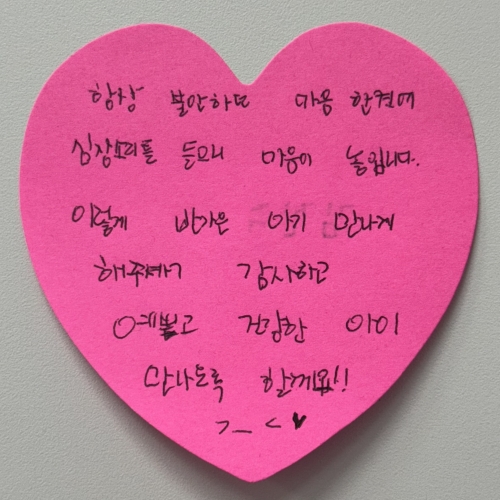 항상 불안하던 마음 한켠에
심장소리를 들으니 마음이 놓입니다.
이렇게 반가운 아기 만나게
해주셔서 감사하고
예쁘고 건강한 아이
만나도록 할께요!!
>_< ♥